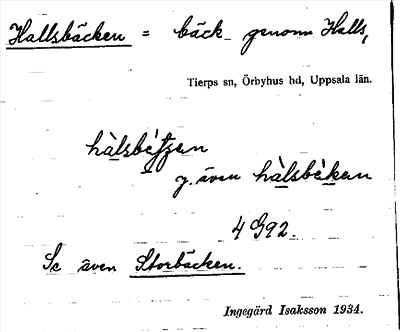 Hallsbäcken = bäck genom Halls,
Tierps sn, Örbyhus hd, Uppsala län.
hàlsbètzen
g. även hàlsbèken
4 G92.
Se även Storbäcken.
Ingegärd Isaksson 1934.